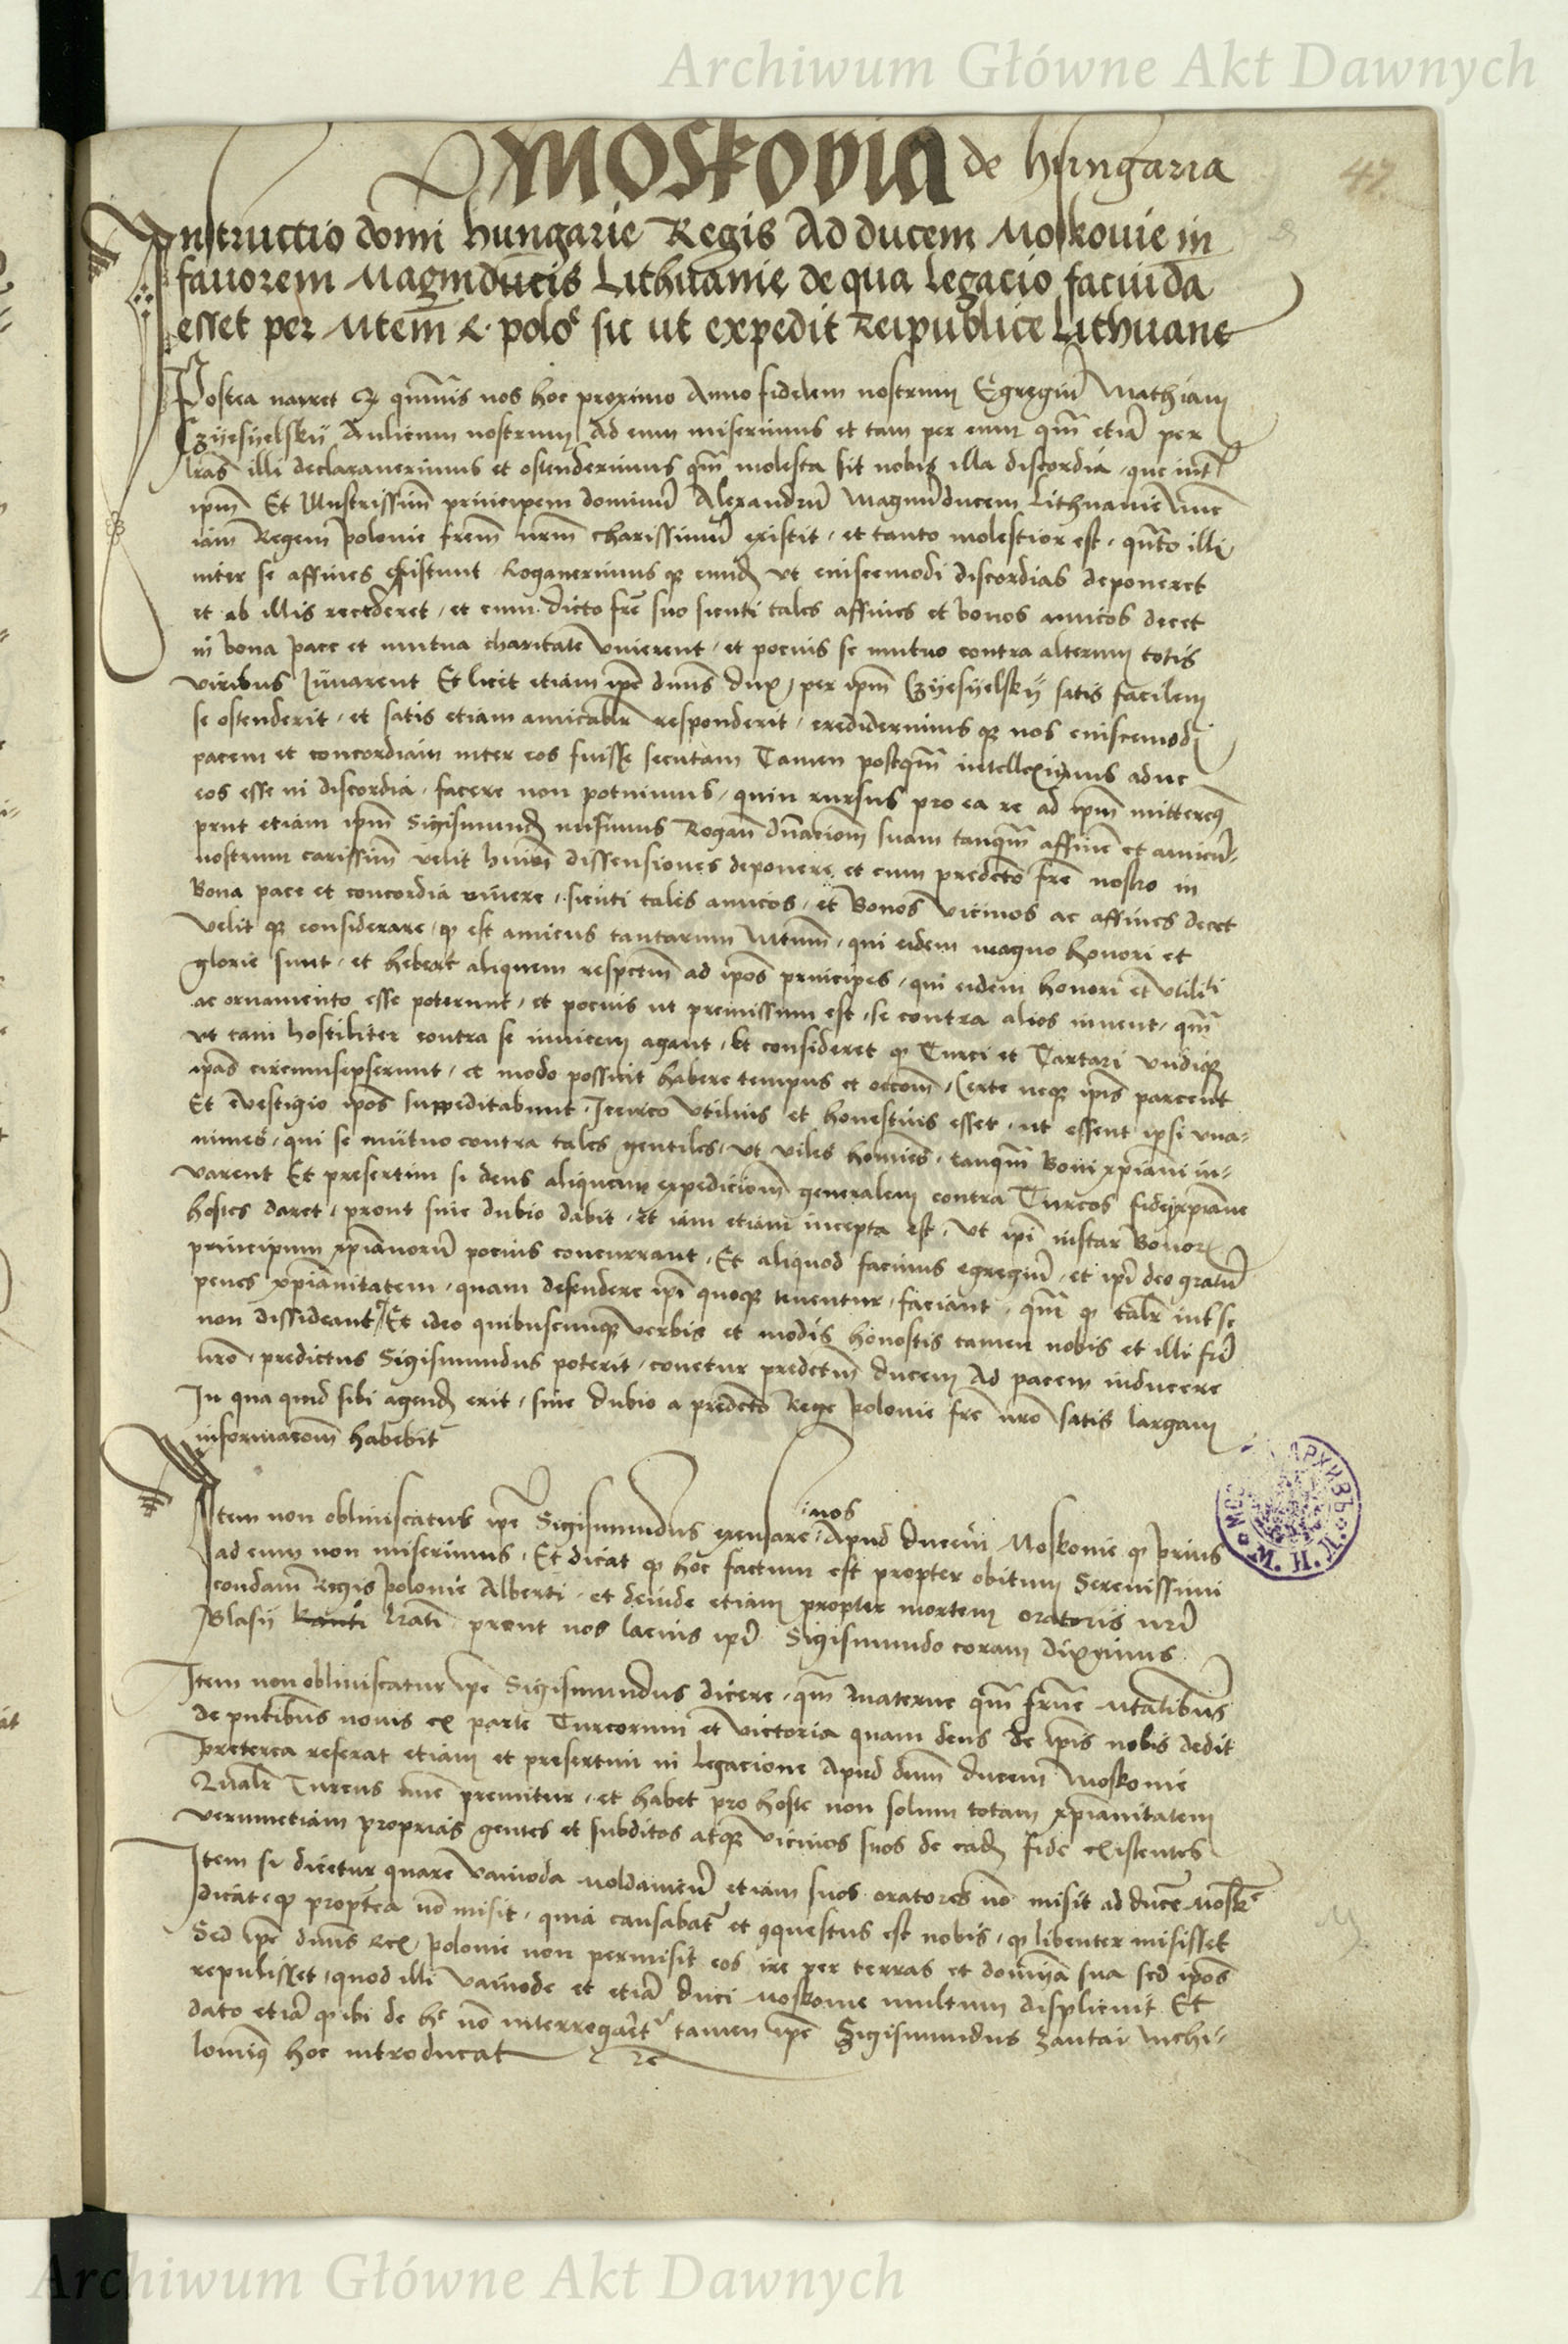 Archiwum Główne Akt Dawnych
Moskovia de hungaria
47
Instructio domi hungarie Regis Ad ducem Moskovie in
favorem Magniducis Lithuanie de qua legacio faciūda
esset per Mtem R. polo͡e sic ut expedit Reipublice Lithuane
Postea narret qƺ qmvis nos hoc proximo Anno fidelem nostrum Egregiū Mathiam
Czÿesÿelskÿ Aulicum nostrum Ad eum miserimus et tam per eum qm̄ etiā per
lras illi declaraverimus et ostenderimus qm̄ molesta sit nobis illa discordia, que int̄
ipm̄ Et Illustrissim̄ principem dominū Alexandrū Magnūducem Lithuanie nūc
iam Regem polonie frem̄ nrm̄ charissimū existit, et tanto molestior est, qn̄to illi
inter se affines existunt, Rogaverimus qƺ eundƺ ut eiuscemodi discordias deponeret
et ab illis recederet, et cum dicto fre suo sicuti tales affines et bonos amicos decet
in bona pace et mutua charitate viverent, et pocius se mutuo contra alterum totis
viribus Iuvarent Et licet etiam ipe dn̄us dux, per ipm̄ Czÿesÿelskÿ satis facilem
se ostenderit, et satis etiam amicablr responderit, crediderimus qƺ nos eiuscemodi
pacem et concordiam inter eos fuisse secutam Tamen postqm̄ intelleximus aduc
eos esse in discordia, facere non potuimus, quin rursus pro ea re ad ipm̄ mitterem9
prut etiam ipm̄ Sigismundƺ misimus Rogan̄ dn̄acioem̄ suam tanqm̄ affinē et amicū-
nostrum carissim̄ velit huiōi dissensiones deponere et cum predcto fre nostro in
Bona pace et concordia vivere, sicuti tales amicos, et Bonos vicinos ac affines decet
velit qƺ considerare, qƺ est amicus tantarum Mtum̄, qui eidem magno honori et
glorie sunt, et heberet aliquem respctm̄ ad ipos principes, qui eidem honori et utiliti
ac ornamento esse poterunt, et pocius ut premissum est, se contra alios iuvent, qm̄
ut tam hostiliter contra se invicem agant, Et consideret qƺ Turci et Tartari undiqƺ
ipas circumsepserunt, et modo possint habere tempus et occōm, Certe neqƺ ipis parcent
Et evestigio ipos suppeditabunt, Iccirco utilius et honestius esset, ut essent ipsi una-
nimes, qui se mutuo contra tales gentiles, ut viles homies, tanqm̄ Boni xpiani iu-
varent Et presertim si deus aliquam expedicioem̄ generalem contra Turcos fidei xpiane
hostes daret, prout sine dubio dabit, et iam etiam incepta est, ut ipi instar Bonorƺ
principum xpianorū pocius concurrant, Et aliquod facinus egregiū, et ipi deo gratū
penes xpianitatem, quam defendere ipi quoqƺ tenentur, faciant, qm̄ qƺ talr int̄ se
non dissideant, Et ideo quibuscunqƺ verbis et modis honestis tamen nobis et illi fri
nro, predictus Sigismundus poterit, conetur predctm̄ ducem Ad pacem inducere
In qua quid sibi agendƺ erit, sine dubio a predcto Rege polonie fre nro satis largam
informacōm habebit
Item non obliviscatur ipe Sigismundus excusare nos Apud ducem Moskovie qƺ prius
ad eum non miserimus, Et dicat qƺ hoc factum est propter obitum Serenissimi
condam Regis polonie Alberti, et deinde etiam propter mortem oratoris nri
Blasii lrati prout nos lacius ipi Sigismundo coram diximus
Item non obliviscatur ipe Sigismundus dicere, qm̄ materne qm̄ frn̄e Mtatibus
de pntibus novis ex parte Turcorum et victoria quam deus de ipis nobis dedit
Preterea referat etiam et presertim in legacione Apud dnm̄ ducem Moskovie
Qualr Turcus nūc premitur, et habet pro hoste non solum totam xpianitatem
verumetiam proprias gentes et subditos atqƺ vicinos suos de eadƺ fide existentes
Item si dicetur quare vaivoda Moldavien̄ etiam suos oratores nō misit ad ducē Mosk̄e
dicat qƺ proptea nō misit, quia causabat̄ et ꝯquestus est nobis, qƺ libenter misisset
Sed ipe dn̄us Rex polonie non permisit eos ire per terras et domīa sua sed ipos
repulisset, quod illi vaivode et etiā duci Moskovie multum displicuit Et
dato etiā qƺ ibi de hc nō interrogaret̄ tamen ipe Sigismundus Zantai Nichi-
lomin9 hoc introducat ⁊c
Archiwum Główne Akt Dawnych